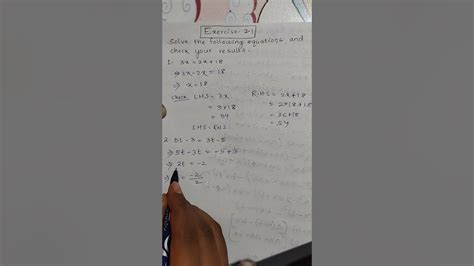 Exercise-2.1
Solve the following equations and
check your results.
1. 3x = 2x+18
⇒ 3x-2x = 18
⇒ x = 18
Check LHS = 3x
RHS = 2x+18
= 3×18
= 2×18+18
= 54
= 36+18
= 54
LHS = RHS
2. 5t-3 = 3t-5
⇒ 5t-3t = -5+3
⇒ 2t = -2
⇒ = -2/2